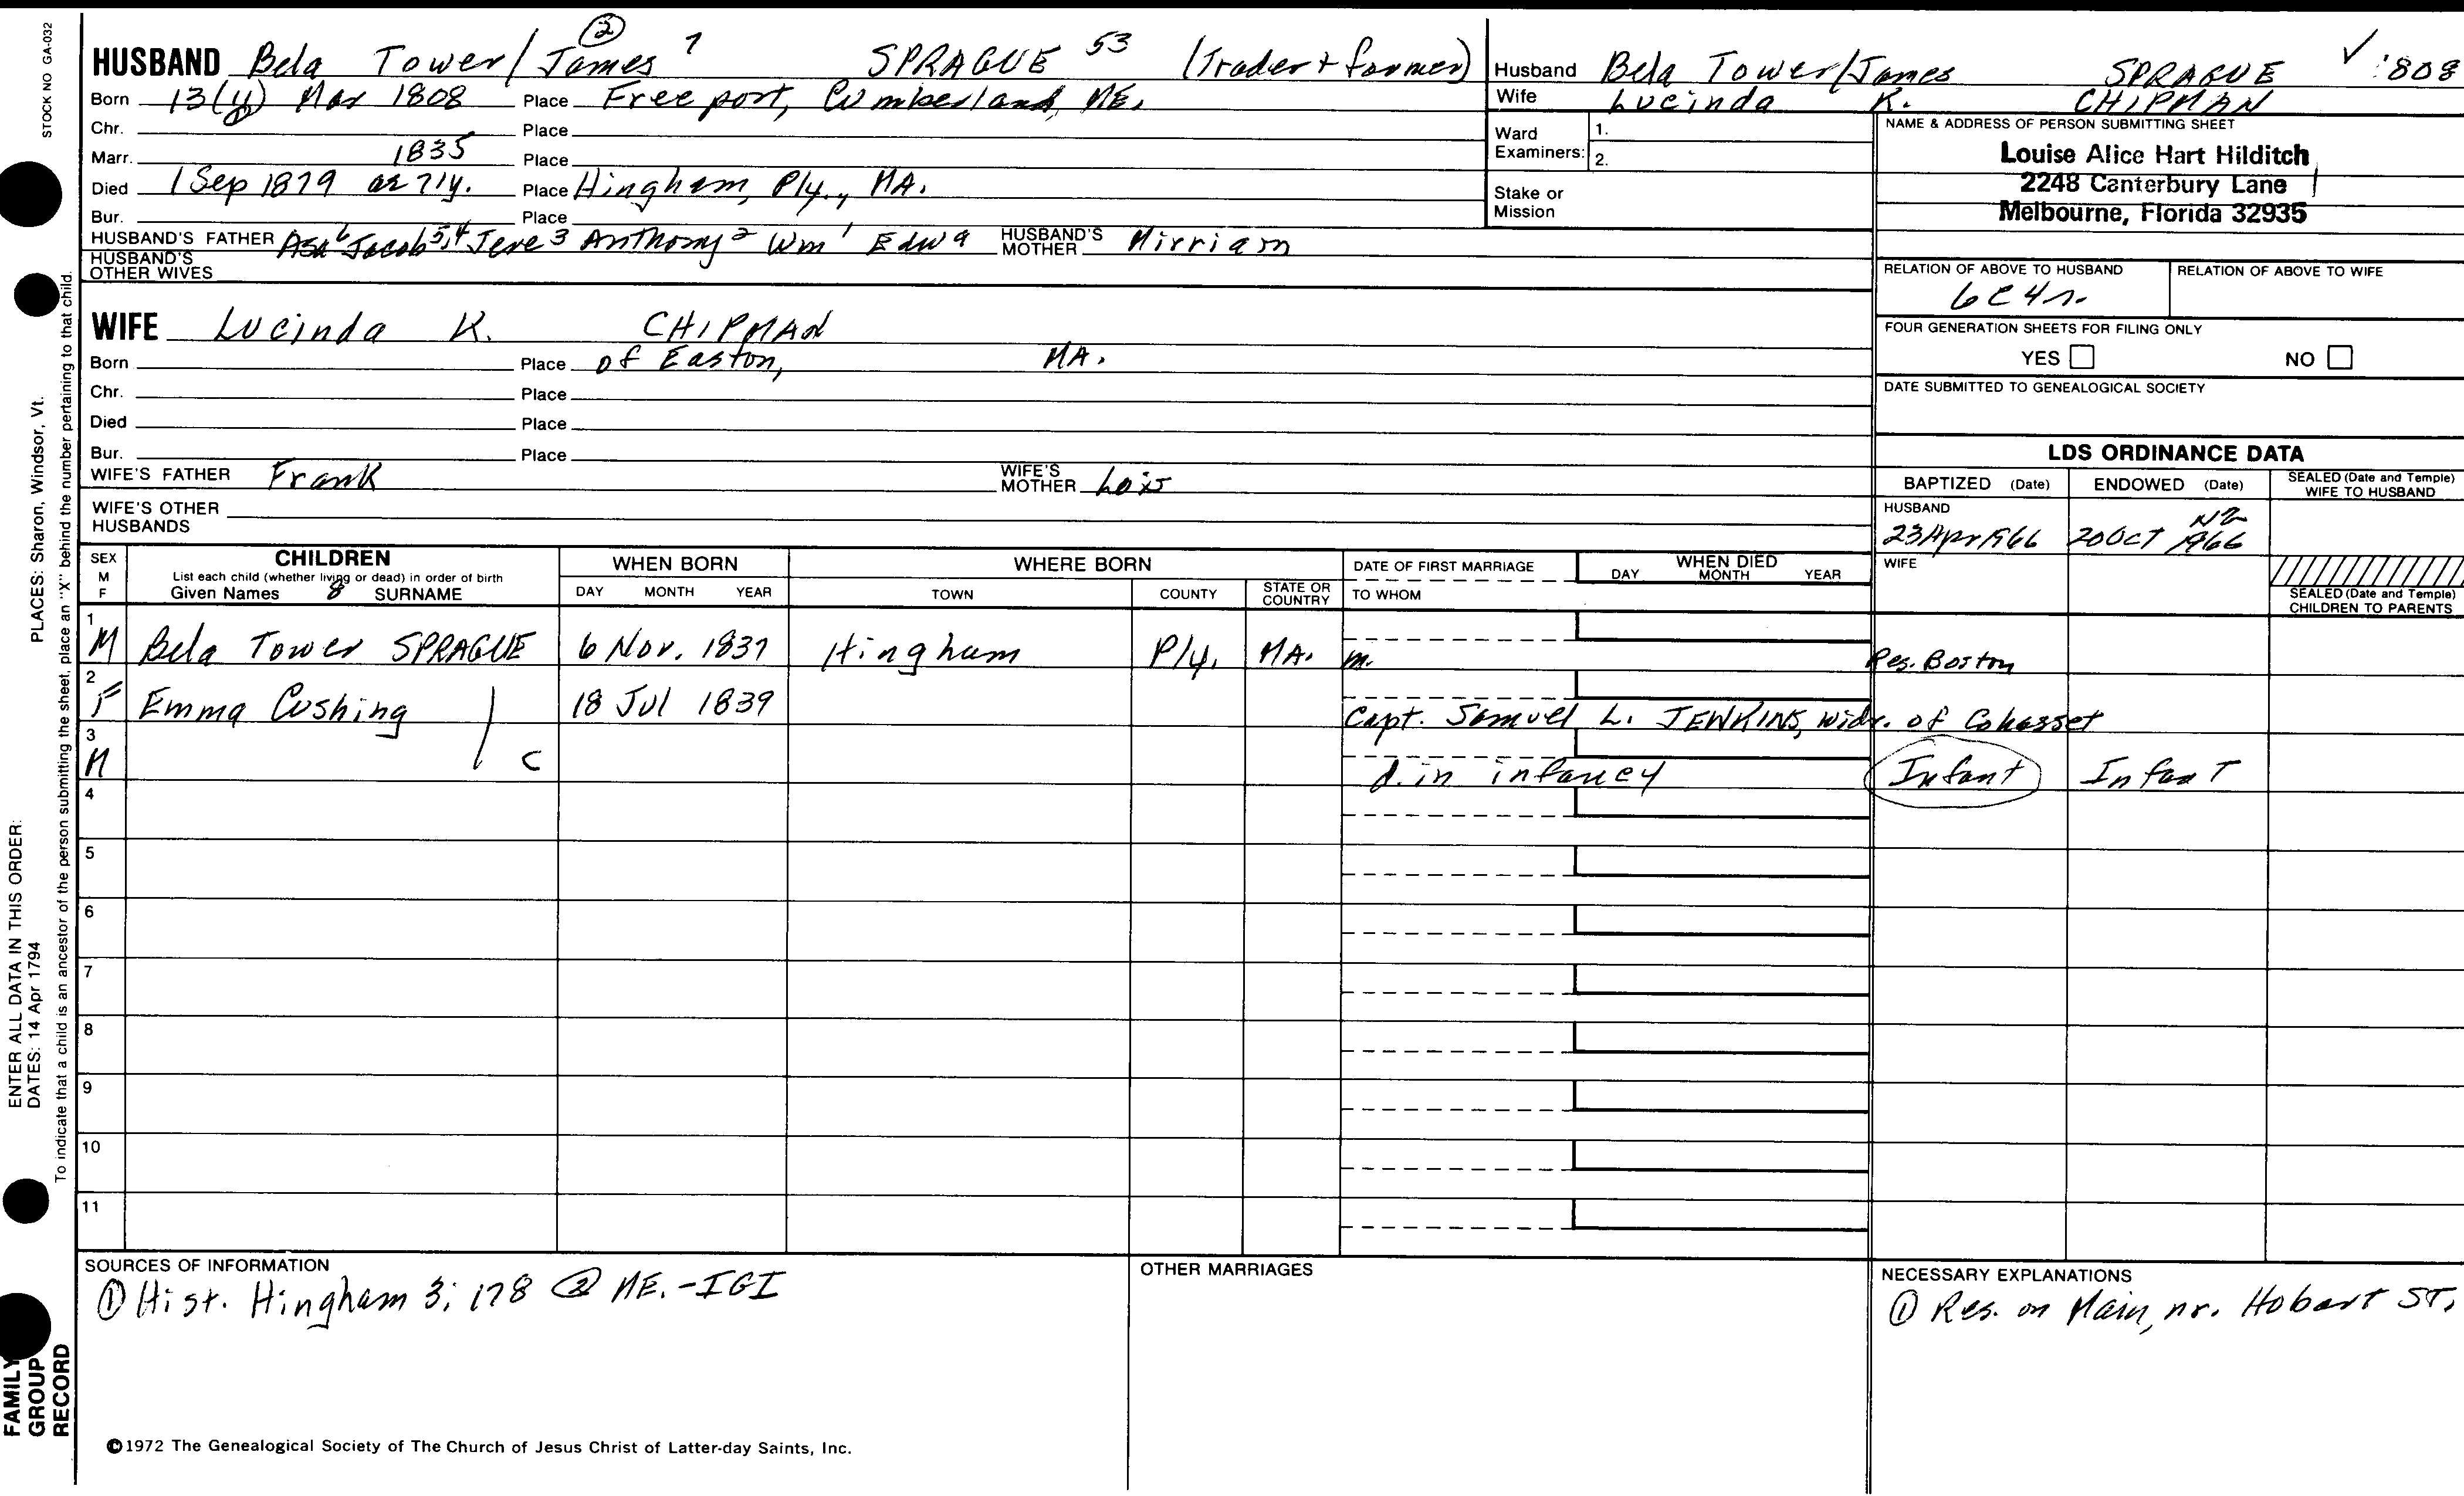 STOCK NO GA-032
HUSBAND Bela Tower/James 7 SPRAGUE 53 (Trader + farmer)
②
Born 13(y) Mar 1808 Place Freeport, Cumberland, ME.
Chr. Place
Marr. 1835 Place
Died 1 Sep 1879 ae 71y. Place Hingham, Ply., MA.
Bur. Place
HUSBAND'S FATHER Asa 6 Jacob 5,4 Jere 3 Anthony 2 Wm 1 Edwd HUSBAND'S MOTHER Mirriam
HUSBAND'S OTHER WIVES
WIFE Lucinda K. CHIPMAN
Born Place of Easton, MA.
Chr. Place
Died Place
Bur. Place
WIFE'S FATHER Frank WIFE'S MOTHER Lois
WIFE'S OTHER HUSBANDS
Husband Bela Tower/James SPRAGUE ✓ 1808
Wife Lucinda K. CHIPMAN
Ward Examiners: 1.
2.
Stake or Mission
NAME & ADDRESS OF PERSON SUBMITTING SHEET
Louise Alice Hart Hilditch
2248 Canterbury Lane
Melbourne, Florida 32935
RELATION OF ABOVE TO HUSBAND RELATION OF ABOVE TO WIFE
6C4r.
FOUR GENERATION SHEETS FOR FILING ONLY
YES NO
DATE SUBMITTED TO GENEALOGICAL SOCIETY
LDS ORDINANCE DATA
BAPTIZED (Date) ENDOWED (Date) SEALED (Date and Temple) WIFE TO HUSBAND
HUSBAND
23 Apr 1966 20 Oct 1966 NZ
WIFE
SEALED (Date and Temple) CHILDREN TO PARENTS
SEX M F CHILDREN WHEN BORN WHERE BORN DATE OF FIRST MARRIAGE WHEN DIED
List each child (whether living or dead) in order of birth
Given Names 8 SURNAME DAY MONTH YEAR TOWN COUNTY STATE OR COUNTRY TO WHOM DAY MONTH YEAR
1 M Bela Tower SPRAGUE 6 Nov. 1837 Hingham Ply. MA. m. Res. Boston
2 F Emma Cushing 18 Jul 1839 Capt. Samuel L. JENKINS, widr. of Cohasset
3 M C d. in infancy Infant Infant
4
5
6
7
8
9
10
11
SOURCES OF INFORMATION
① Hist. Hingham 3; 178 ② ME.-IGI
OTHER MARRIAGES
NECESSARY EXPLANATIONS
① Res. on Main, nr. Hobart ST.
©1972 The Genealogical Society of The Church of Jesus Christ of Latter-day Saints, Inc.
ENTER ALL DATA IN THIS ORDER:
DATES: 14 Apr 1794 PLACES: Sharon, Windsor, Vt.
To indicate that a child is an ancestor of the person submitting the sheet, place an "X" behind the number pertaining to that child.
FAMILY
GROUP
RECORD